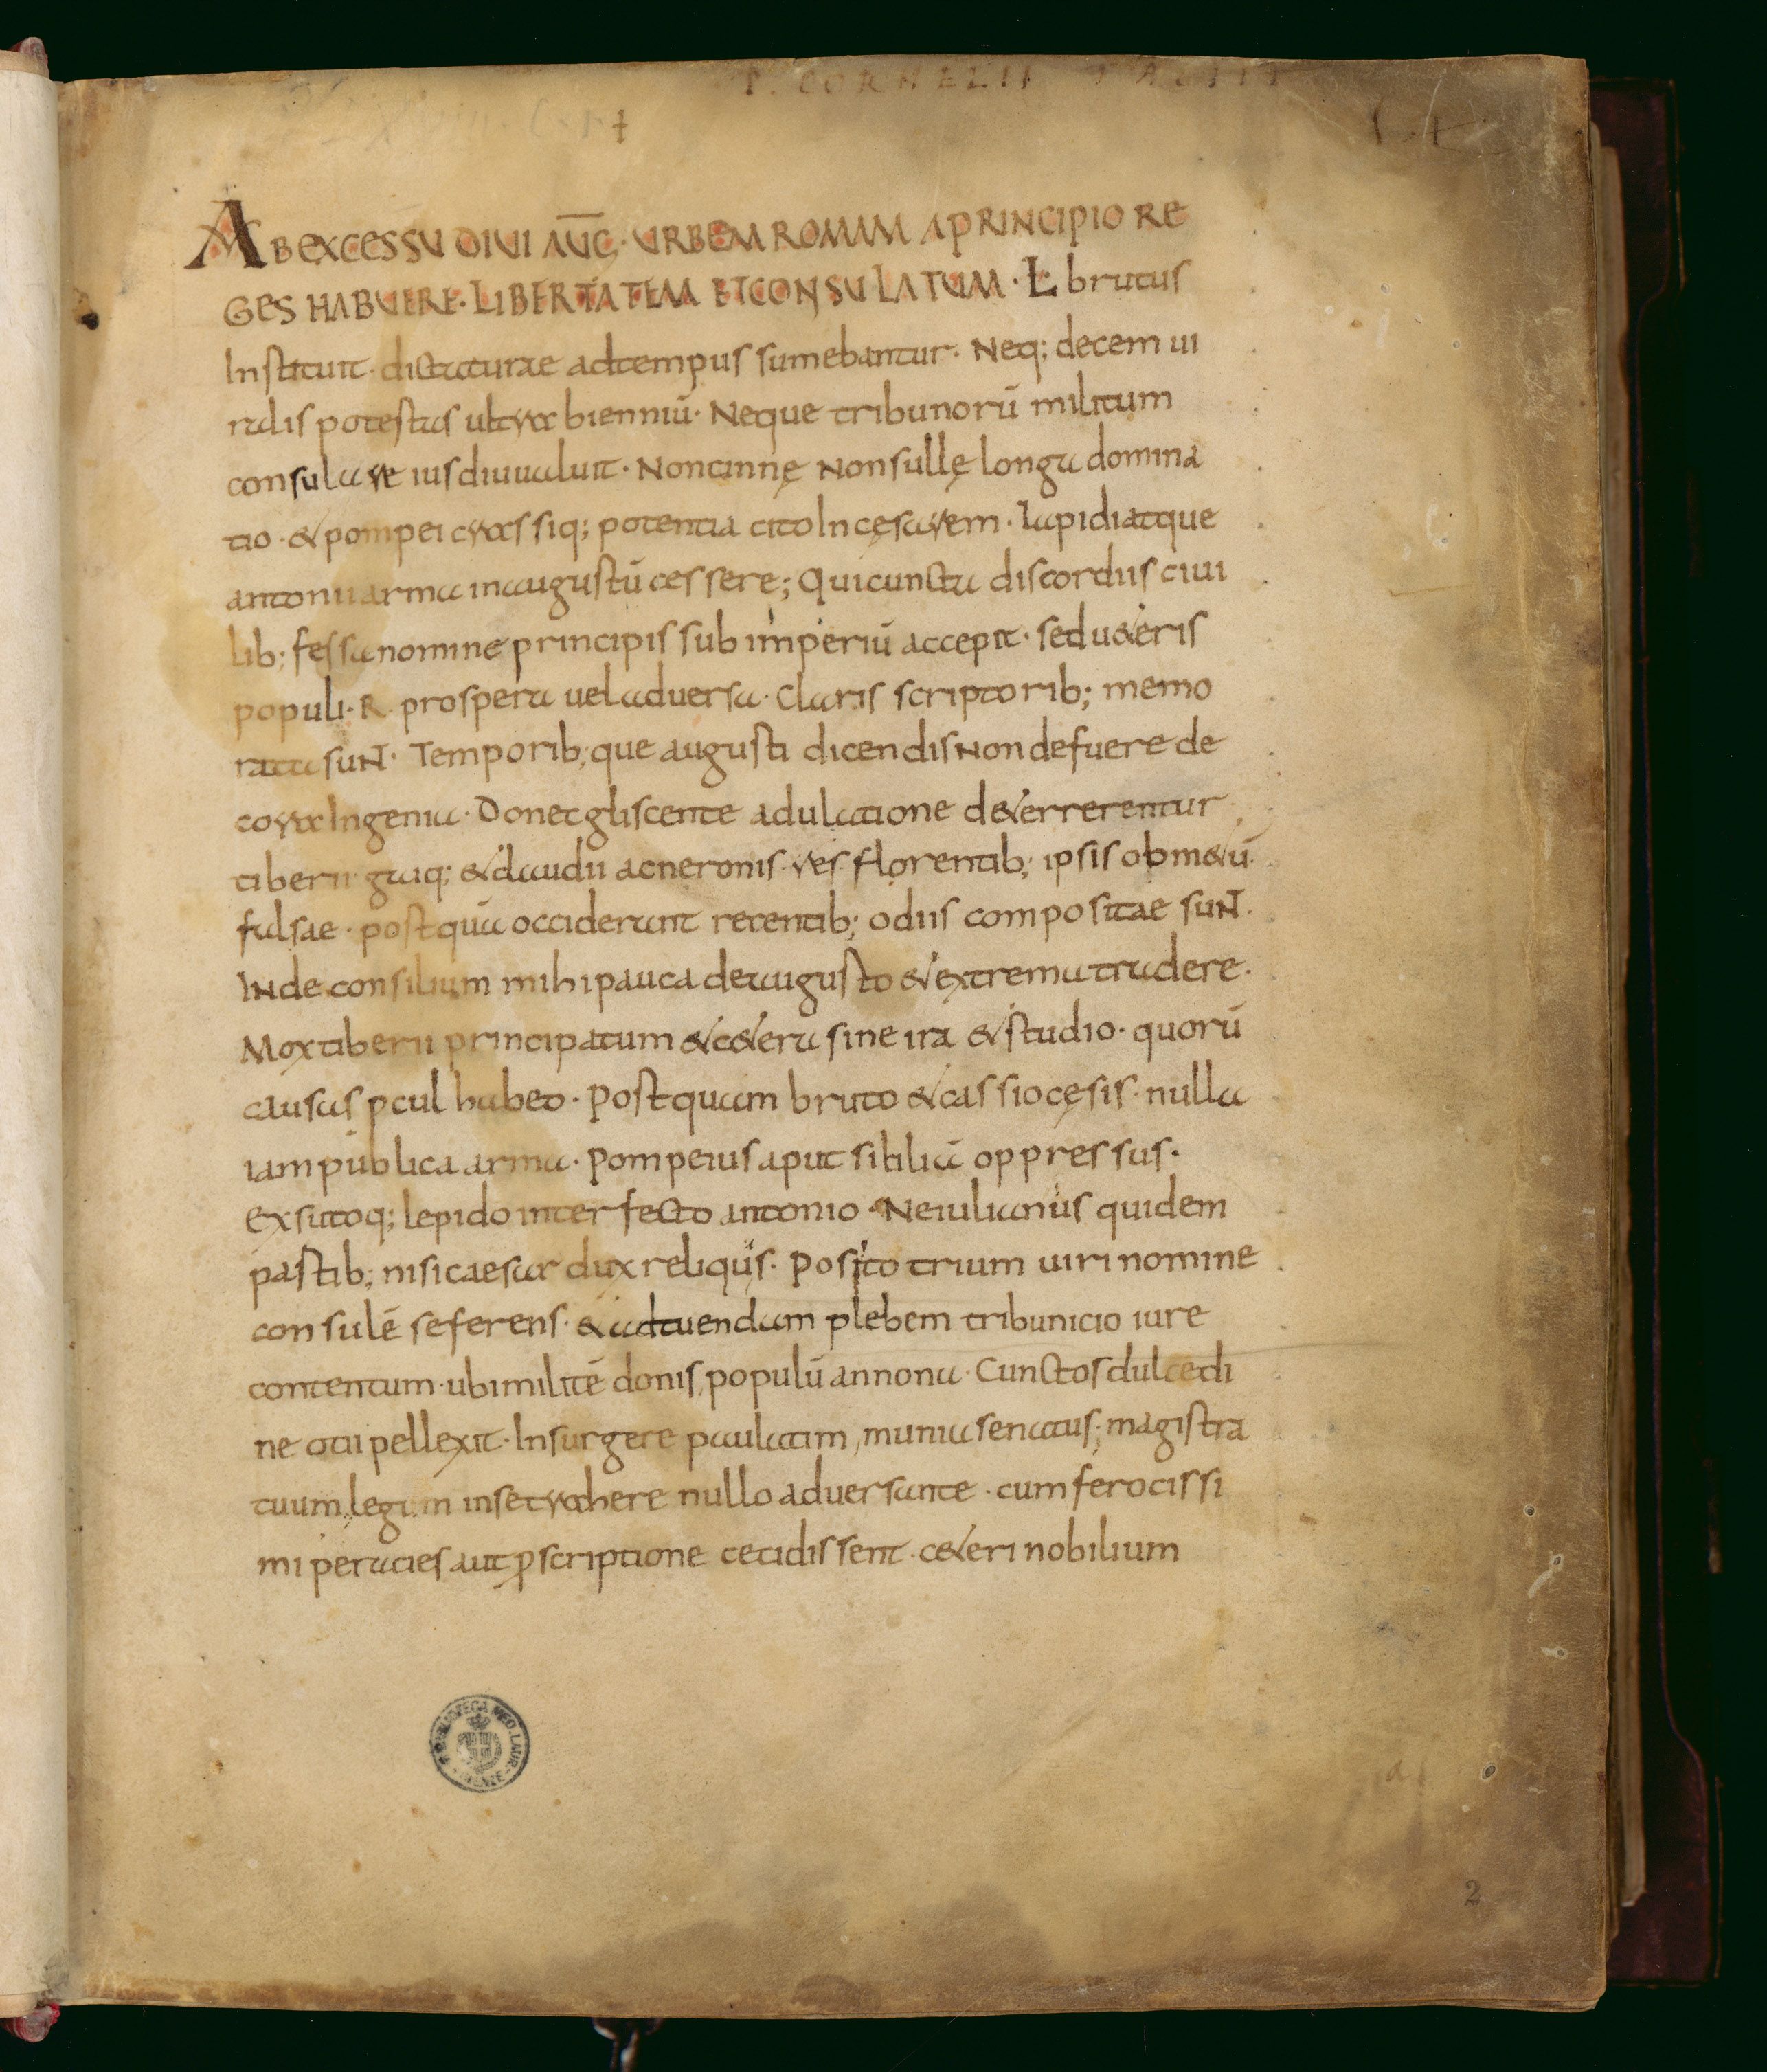 P. CORNELII TACITI
AB EXCESSU DIVI AUG. URBEM ROMAM A PRINCIPIO RE
GES HABUERE. LIBERTATEM ET CONSULATUM. L. brutus
Instituit. dictaturae adtempus sumebantur. Neq; decem ui
ralis potestas ultra bienniū. Neque tribunorū militum
consulare ius diu ualuit. Non cinnę Non sullę longa domina
tio. & pompei crassiq; potentia cito In cęsarem. Lapidi atque
antonii arma in augustū cessere; Qui cuncta discordiis ciui
lib; fessa nomine principis sub imperiū accepit. sed u&eris
populi. R. prospera uel aduersa. Claris scriptorib; memo
rata suNT. Temporib; que augusti dicendis Non defuere de
cora Ingenia. Donec gliscente adulatione d&errerentur
tiberii gaiq; & claudii ac neronis res florentib; ipsis ob m&ū
falsae. postquā occiderant recentib; odiis compositae suNT.
INde consilium mihi pauca de augusto & extrema tradere.
Mox tiberii principatum & c&era sine ira & studio. quorū
causas pcul habeo. Postquam bruto & cassio cęsis. nulla
iam publica arma. Pompeius aput siciliā oppressus.
Exsutoq; lepido interfecto antonio. Ne iulianus quidem
pastib; nisi caesar dux reliquus. Posito trium uiri nomine
consulē se ferens. & ad tuendam plebem tribunicio iure
contentum. ubi militē donis, populū annona. Cunctos dulcedi
ne otii pellexit. Insurgere paulatim, munia senatus; magistra
tuum, legum in se trahere nullo aduersante. cum ferocissi
mi per acies aut pscriptione cecidissent. c&eri nobilium
BIBLIOTECA MED. LAUR.
FIRENZE
2